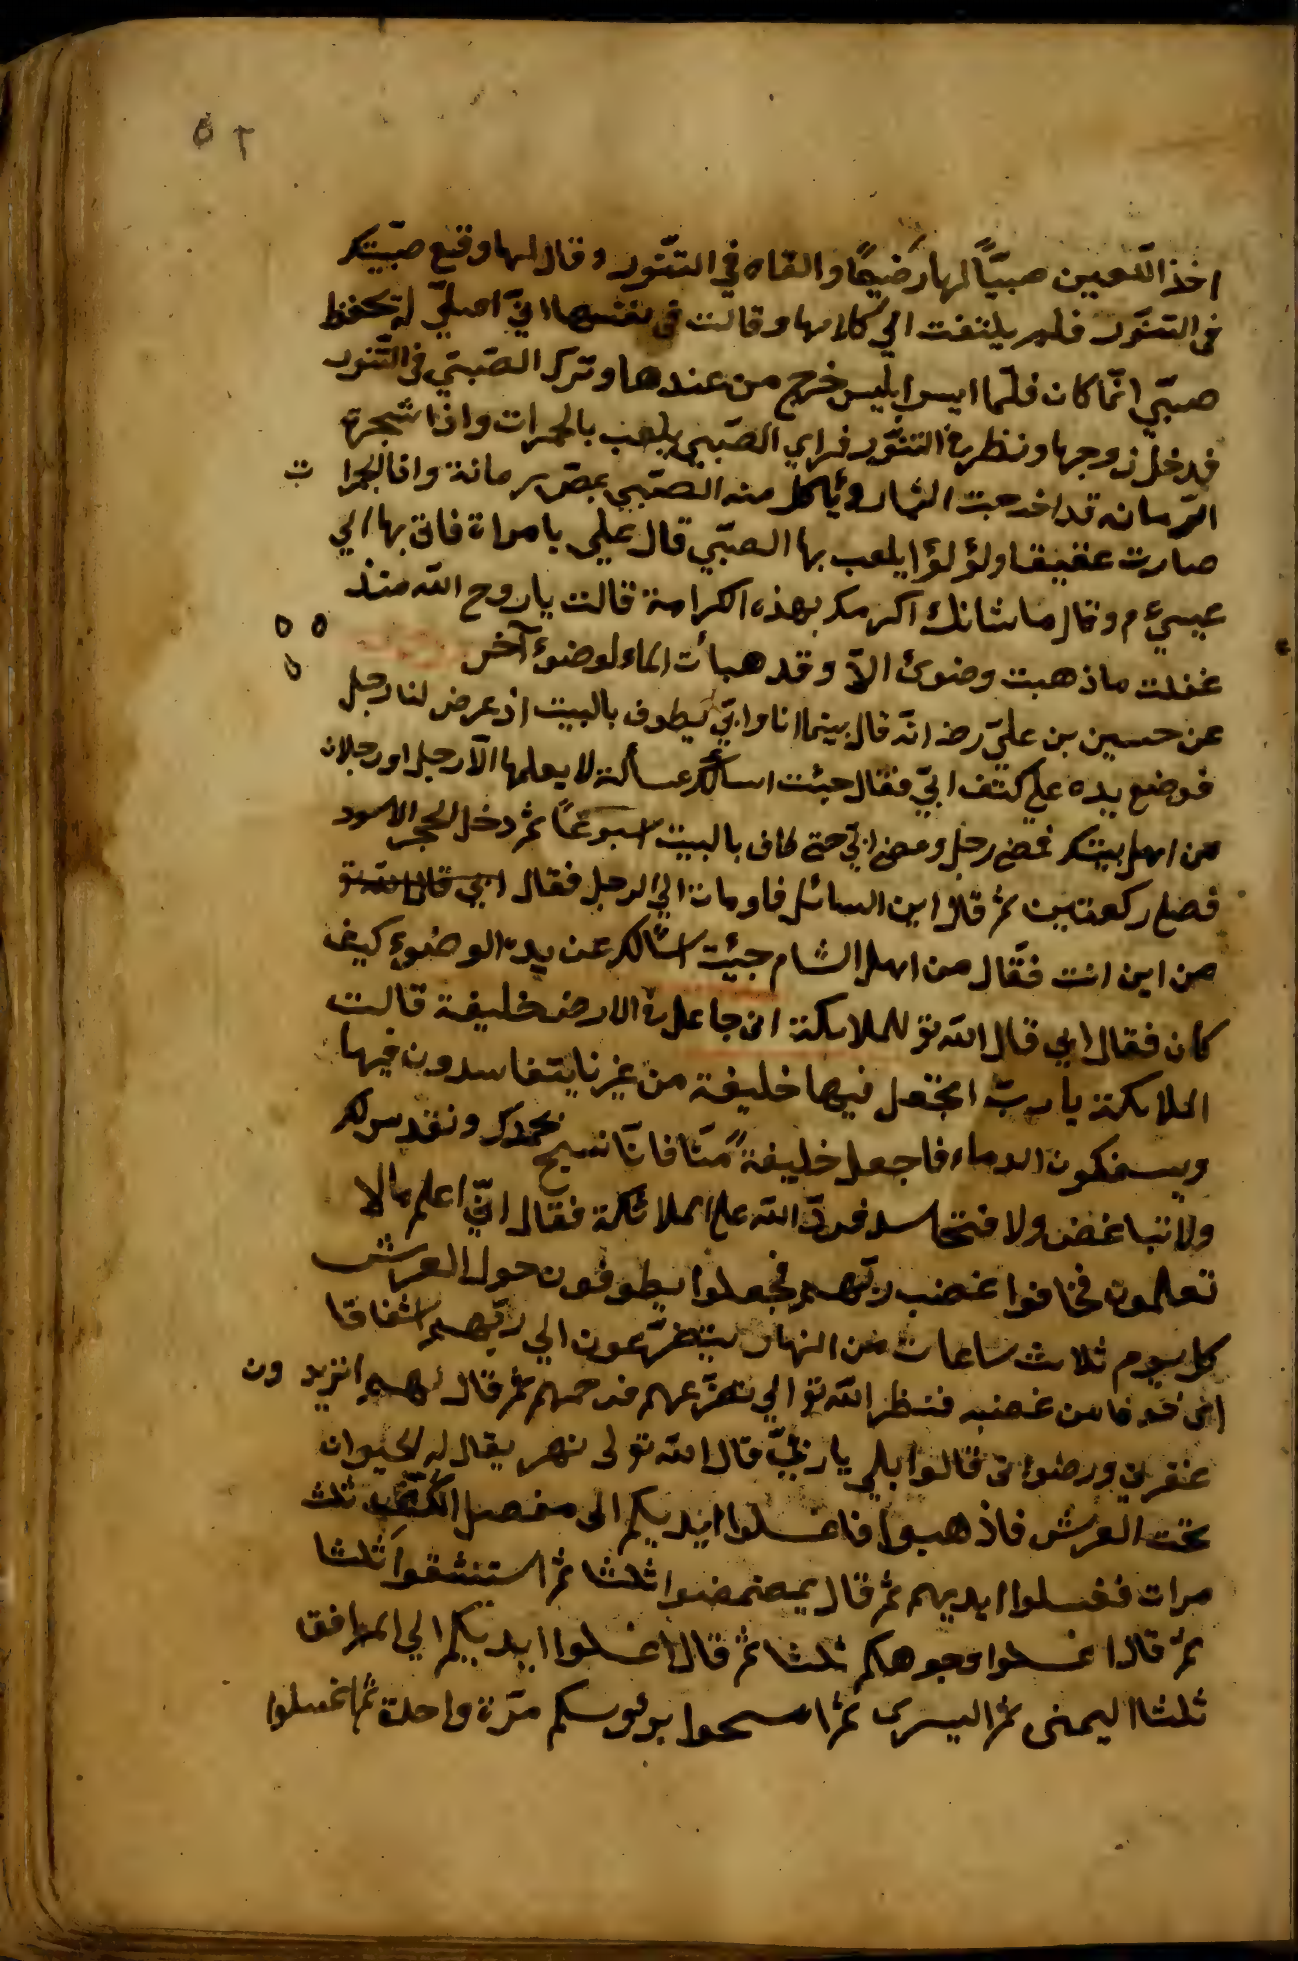 ٥٢
اخذ اللعين صبيّاً لها رَضيعًا والقاه في التنّور وقال لها وقع صبّيتك
في التنّور فلم يلتفت الي كلامها وقالت في نفسها انّي اصلّي له يحفظ
صبّي انّما كان فلمّا ايس ابليس خرج من عندها وترك الصّبيّ في التّنور
فدخل زوجها ونظر في التنّور فراي الصّبي يلعب بالجمرات واذا شجرة
الرّمانه قد اخرجت الثمار ويأكل منه الصّبي بمصّ رمانة واذا الجمرات
صارت عقيقا ولؤلؤا يلعب بها الصبّي قال علي بامراة فاتي بها الي
عيسيٰ م وقال ما شانك اكرمك بهذه الكرامة قالت يا روح الله منذ
غفلت ما ذهبت وضوئ الّا وقد هبأت الماء لوضوء آخر
عن حسين بن عليّ رضه انّه قال بينما انا وابيّ يطوف بالبيت اذ عرض لنا رجل
فوضع يده علي كتف ابيّ فقال جئت اسألك عسألة لا يعلمها الّا رجل او رجلان
من اهل بيتك فمضي رجل ومضي ابيّ حتي طاف بالبيت اسبوعًا ثمّ دخل الحجر الاسود
فصلي ركعتين ثم قال اين السائل فاومات الي الرجل فقال ابي قال الله تو
من اين انت فقال من اهل الشام جيئت اسألك عن بدء الوضوء كيف
كان فقال ابي قال الله تو للملائكة اني جاعل في الارض خليفة قالت
الملائكة يا ربّ اتجعل فيها خليفة من غيرنا يتفاسدون فيها
ويسفكون الدماء فاجعل خليفةً منّا فانّا نسبح بحمدك ونقدس لك
ولا نتباغض ولا فنتحاسد فردّ الله علي الملائكة فقال انّي اعلم ما لا
تعلمون فخافوا غضب ربّهم فجعلوا يطوفون حول العرش
كل يوم ثلاث ساعات من النهار يتضرّعون الي ربّهم اشفاقا
من غضبه فنظر الله تو الي تضرّعهم فرحمهم ثم قال لهم اتريدون
غفرني ورضواني قالوا بلي يا ربّ قال الله تو لي نهر يقال له الحيوان
تحت العرش فاذهبوا فاغسلوا ايديكم الى مفصل الكفّ ثلث
مرات فغسلوا ايديهم ثم قال يمضمضوا ثلثا ثمّ استنشقوا ثلثا
ثمّ قال اغسلوا وجوهكم ثلثا ثمّ قال اغسلوا ايديكم الي المرافق
ثلثا اليمنى ثمّ اليسرى ثمّ امسحوا برئوسكم مرّة واحدة ثمّ اغسلوا